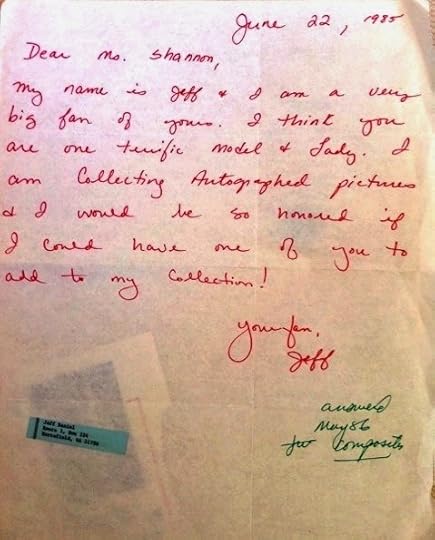 June 22, 1985
Dear Ms. Shannon,
My name is Jeff & I am a very
big fan of yours. I think you
are one terrific model & Lady. I
am Collecting Autographed pictures
& I would be so honored if
I could have one of you to
add to my Collection!
Your fan,
Jeff
answered
May 86
composites
Jeff Daniel